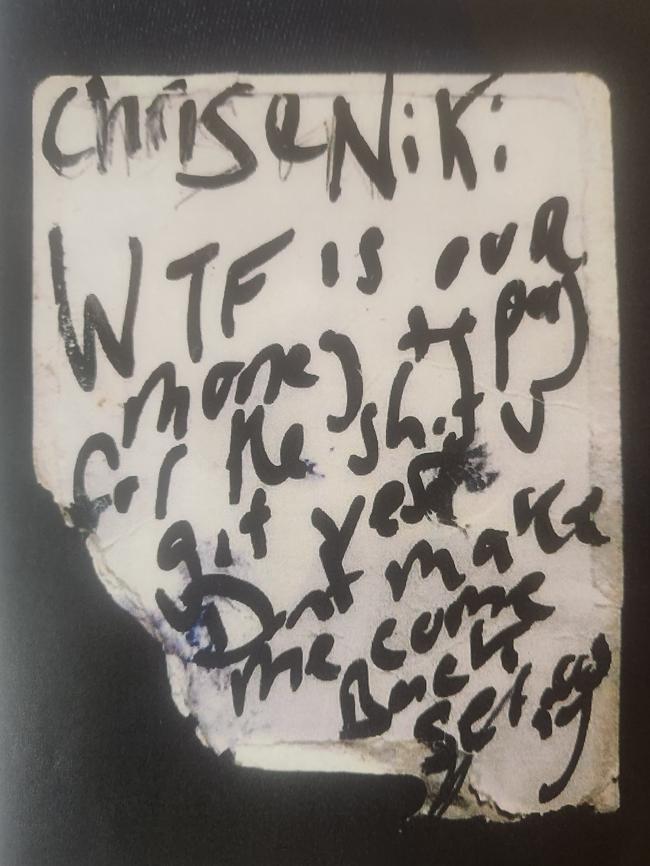 Chris e Niki:
WTF is our
money to pay
for the shit u
got yest
Dont make
me come
Back